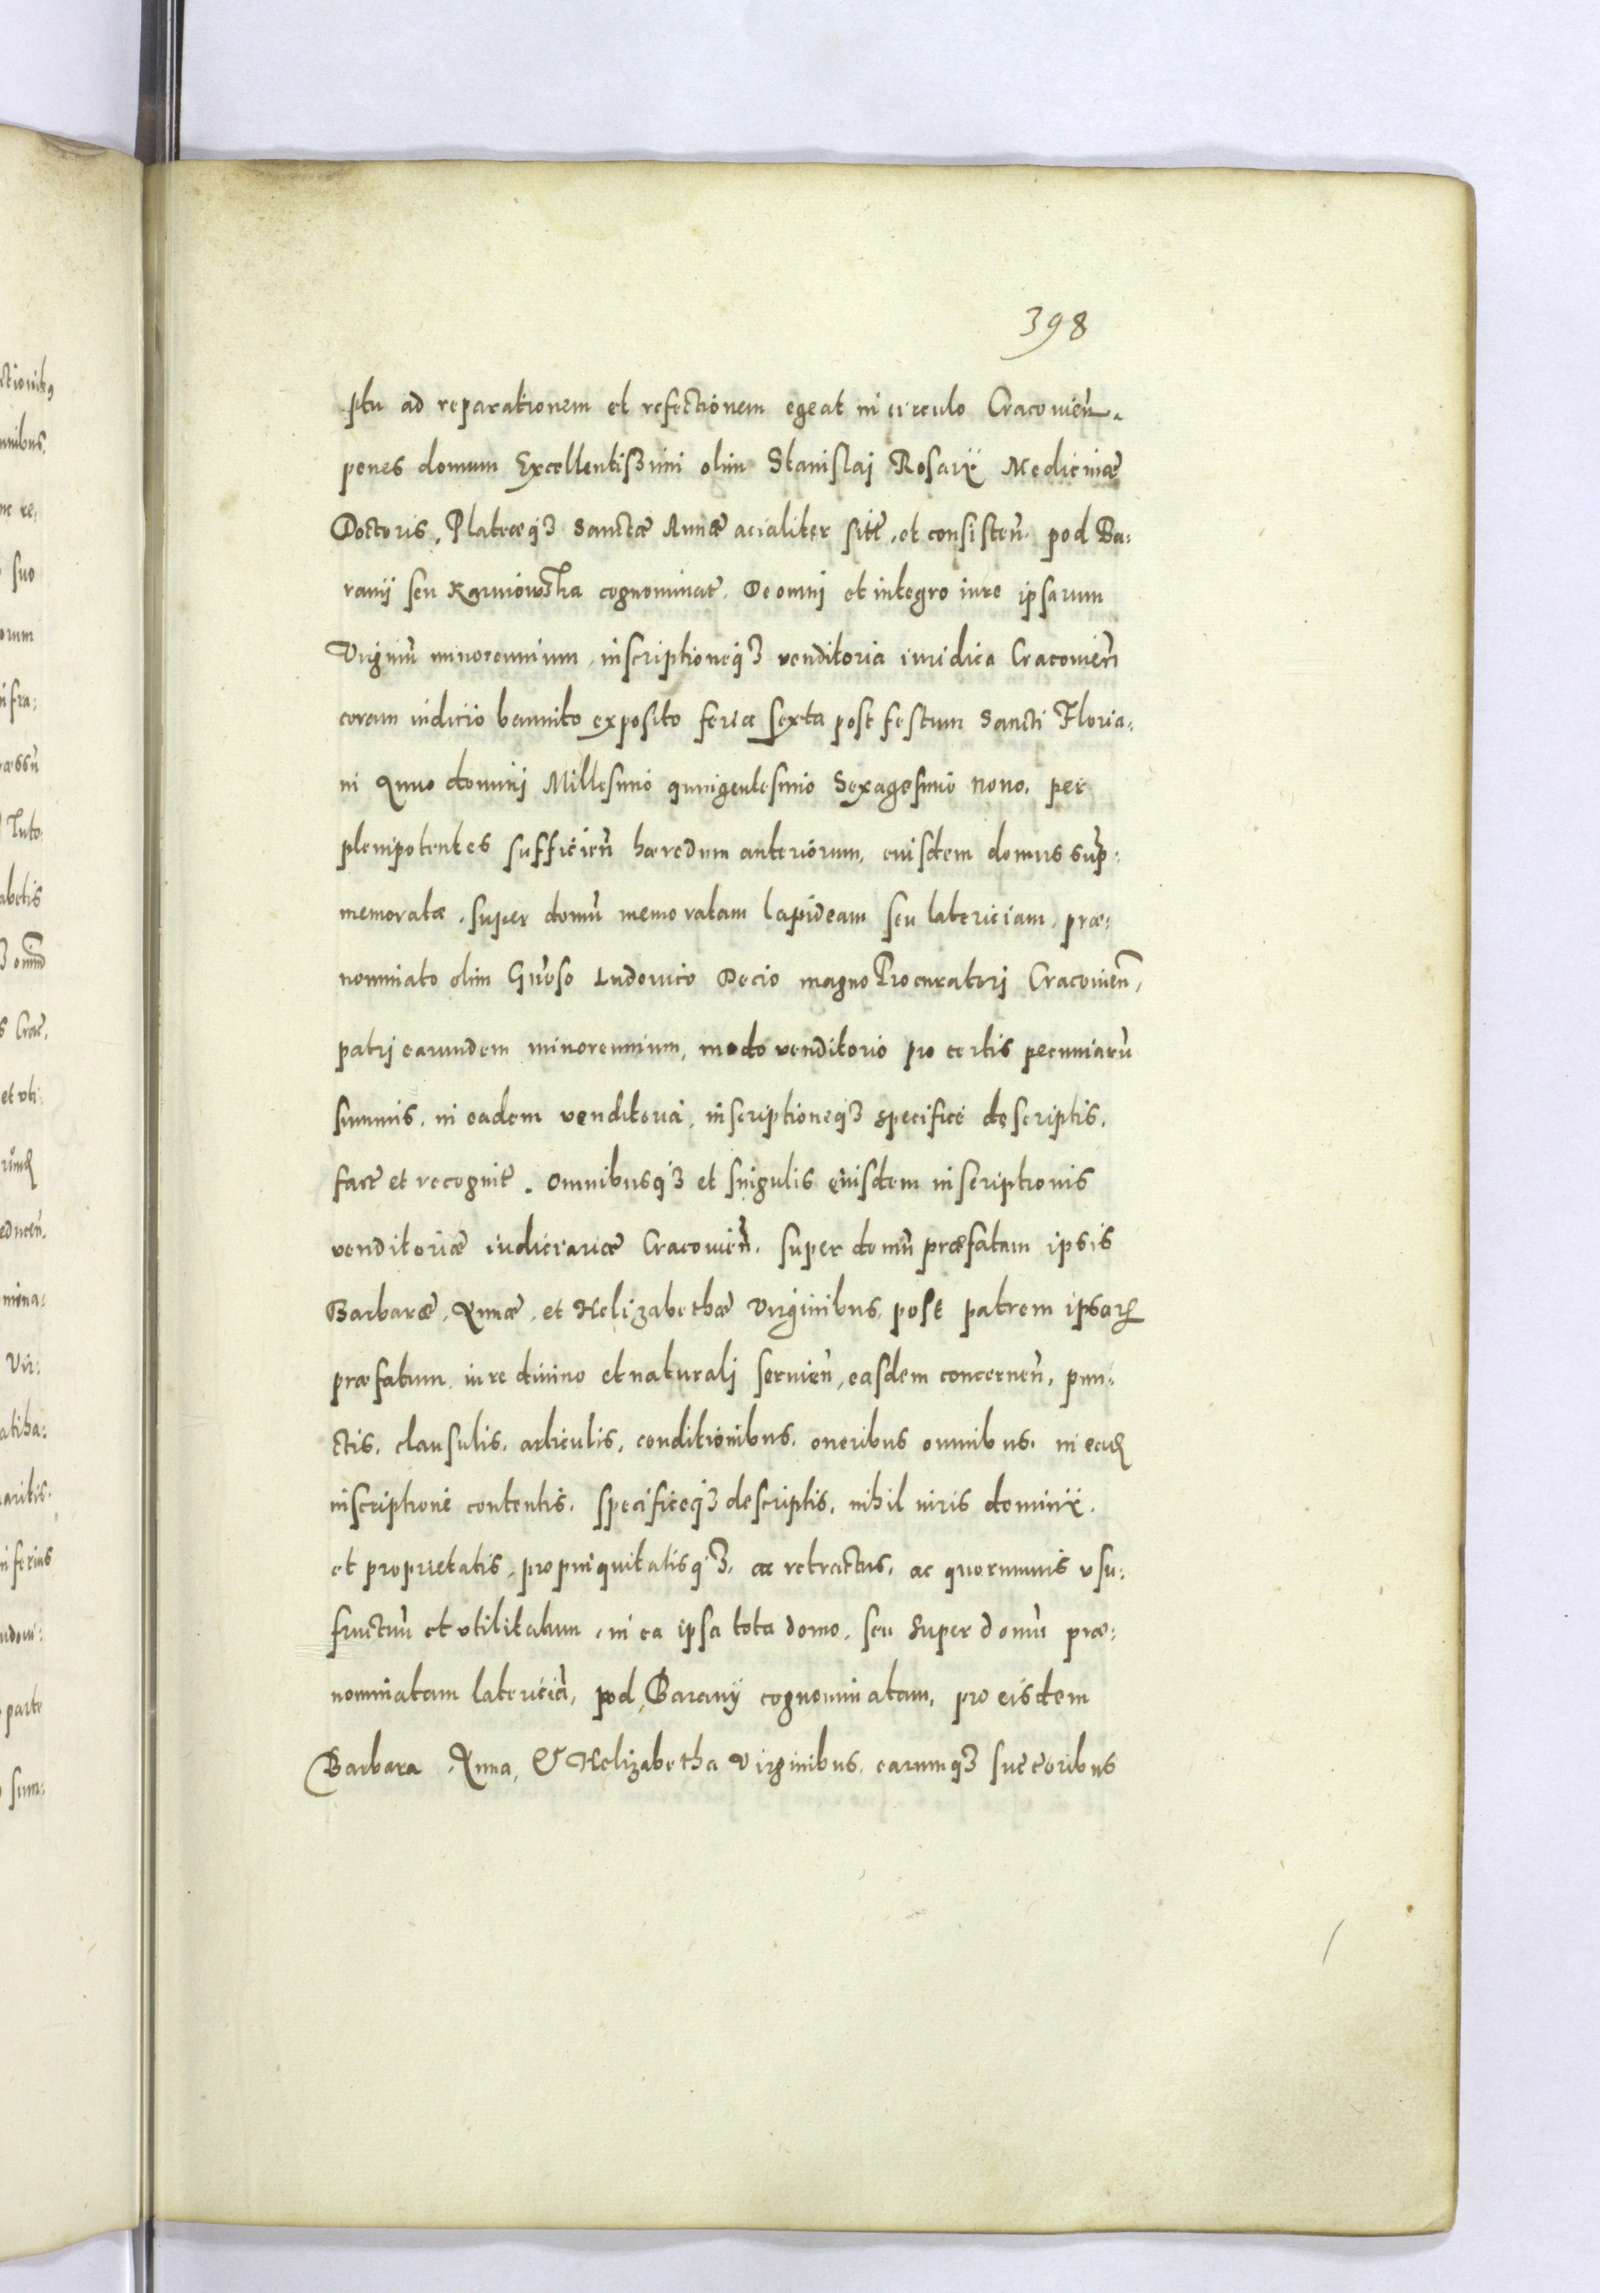 398
ptu ad reparationem et refectionem egeat in circulo Cracovien̄.
penes domum Excellentiszimi olim Stanislaj Rosarÿ Medicinæ
Doctoris, Platææqꝫ Sanctæ Annæ acialiter sitē, et consisten̄. pod Ba:
ranij seu Karniowska cognominat̄. De omni et integro iure ipsarum
Virginū minorennium, inscriptioneqꝫ venditoria iuridica Cracovien̄
coram iudicio bannito exposito feria sexta post festum Sancti Floria:
ni Anno dominj Millesimo quingentesimo Sexagesimo nono. per
plenipotentes sufficien̄ hæredum anteriorum, eiusdem domus sup̄:
memoratæ, super domū memoratam lapideam seu latericiam, præ:
nominato olim Gn̄oso Ludovico Decio magno Procuratorj Cracovien̄,
patrj earundem minorennium, modo venditorio pro certis pecuniarū
summis, in eadem venditoria, inscriptioneqꝫ specifice descriptis,
fact̄ et recognit̄. Omnibusqꝫ et singulis eiusdem inscriptionis
venditoriæ iudiciariæ Cracovien̄. super domū præfatam ipsis
Barbaræ, Annæ, et Helizabethæ Virginibus, post patrem ipsarꝝ
præfatum, iure divino et naturalj servien̄, easdem concernen̄, pun:
ctis, clausulis, articulis, conditionibus, oneribus omnibus, in eadꝫ
inscriptione contentis, specificeqꝫ descriptis, nihil iuris dominÿ,
et proprietatis, propinquitatisqꝫ, ac retractus, ac quorumvis usu:
fructuū et utilitatum, in ea ipsa tota domo, seu super domū præ:
nominatam latericiā, pod Baranÿ cognominatam, pro eisdem
Barbara, Anna, & Helizabetha Virginibus, earumqꝫ succ̄oribus